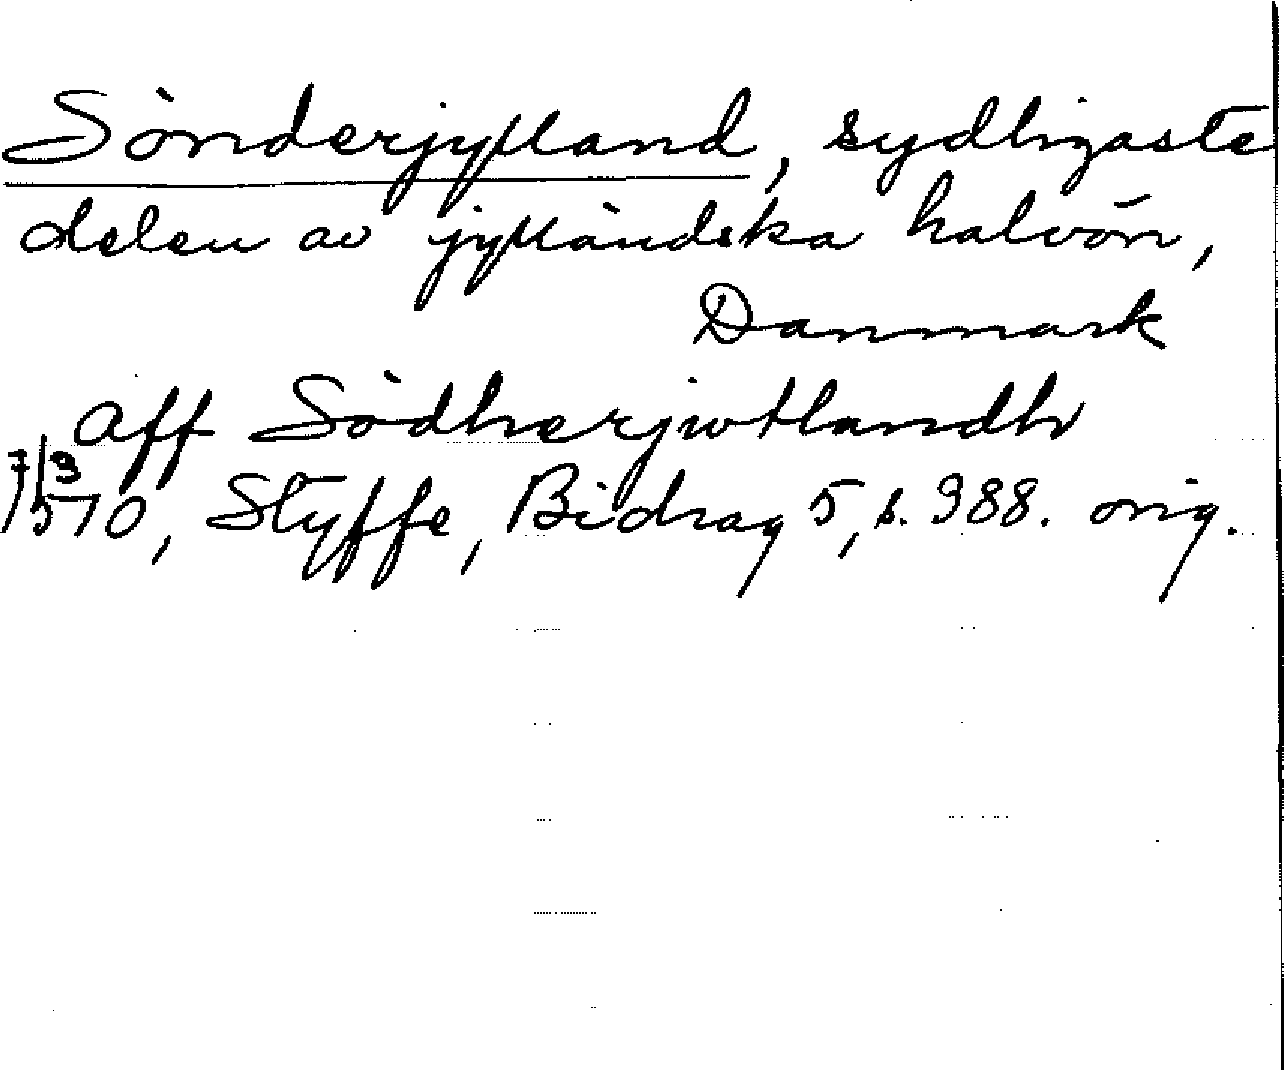 Sönderjylland, sydligaste
delen av jylländska halvön,
Danmark
aff Södherjwtlandh
7/3
1510, Styffe, Bidrag 5, s. 388. orig.